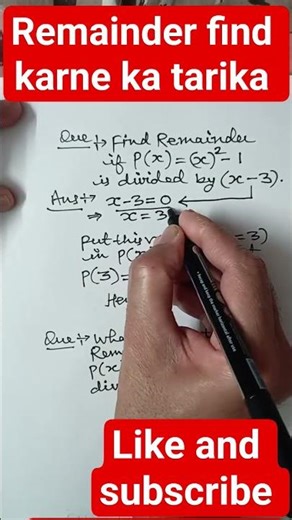 Remainder find
karne ka tarika
Que :→ Find Remainder
if P(x) = (x)² - 1
is divided by (x - 3).
Ans :→ x - 3 = 0
⇒ x = 3
Put this = 3)
in P(x
P(3) =
He
Que :→ Wha
Rem
P(x
div
Like and
subscribe